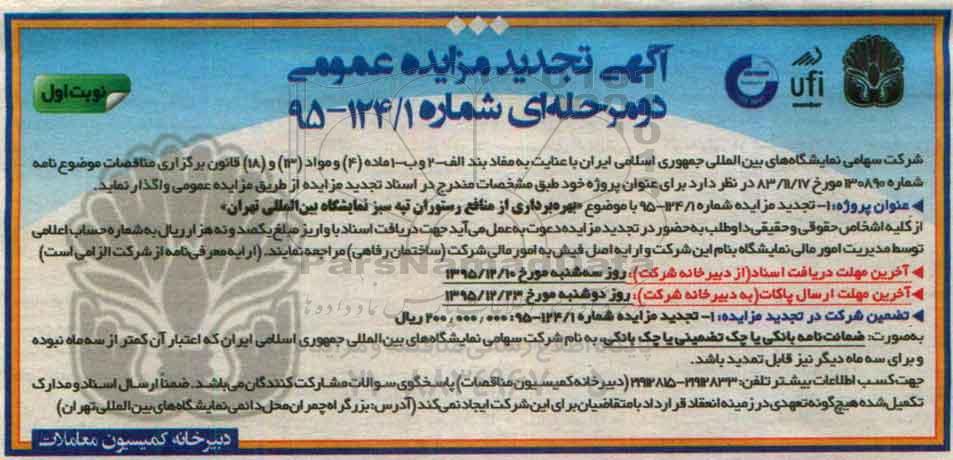 آگهی تجدید مزایده عمومی
دومرحله‌ای شماره ۹۵-۱۲۴/۱
نوبت اول
ufi
member
شرکت سهامی نمایشگاه‌های بین المللی جمهوری اسلامی ایران با عنایت به مفاد بند الف-۲ و ب-۱ ماده (۴) و مواد (۱۳) و (۱۸) قانون برگزاری مناقصات موضوع نامه
شماره ۱۳۰۸۹۰ مورخ ۸۳/۱۱/۱۷ در نظر دارد برای عنوان پروژه خود طبق مشخصات مندرج در اسناد تجدید مزایده از طریق مزایده عمومی واگذار نماید.
عنوان پروژه: ۱- تجدید مزایده شماره ۹۵-۱۲۴/۱ با موضوع «بهره‌برداری از منافع رستوران تپه سبز نمایشگاه بین‌المللی تهران»
از کلیه اشخاص حقوقی و حقیقی داوطلب به حضور در تجدید مزایده دعوت به عمل می‌آید جهت دریافت اسناد با واریز مبلغ یکصد و نه هزار ریال به شماره حساب اعلامی
توسط مدیریت امور مالی نمایشگاه بنام این شرکت و ارایه اصل فیش به امور مالی شرکت (ساختمان رفاهی) مراجعه نمایند. (ارایه معرفی‌نامه از شرکت الزامی است)
آخرین مهلت دریافت اسناد (از دبیرخانه شرکت): روز سه‌شنبه مورخ ۱۳۹۵/۱۲/۱۰
آخرین مهلت ارسال پاکات (به دبیرخانه شرکت): روز دوشنبه مورخ ۱۳۹۵/۱۲/۲۳
تضمین شرکت در تجدید مزایده: ۱- تجدید مزایده شماره ۹۵-۱۲۴/۱: ۲۰۰,۰۰۰,۰۰۰ ریال
به‌صورت: ضمانت‌نامه بانکی یا چک تضمینی یا چک بانکی، به نام شرکت سهامی نمایشگاه‌های بین المللی جمهوری اسلامی ایران که اعتبار آن کمتر از سه ماه نبوده
و برای سه ماه دیگر نیز قابل تمدید باشد.
جهت کسب اطلاعات بیشتر تلفن: ۲۱۹۱۲۸۳۳-۲۱۹۱۲۸۱۵ (دبیرخانه کمیسیون مناقصات) پاسخگوی سوالات مشارکت کنندگان می‌باشد. ضمناً ارسال اسناد و مدارک
تکمیل شده هیچ‌گونه تعهدی در زمینه انعقاد قرارداد با متقاضیان برای این شرکت ایجاد نمی‌کند (آدرس: بزرگراه چمران محل دائمی نمایشگاه‌های بین المللی تهران)
دبیرخانه کمیسیون معاملات